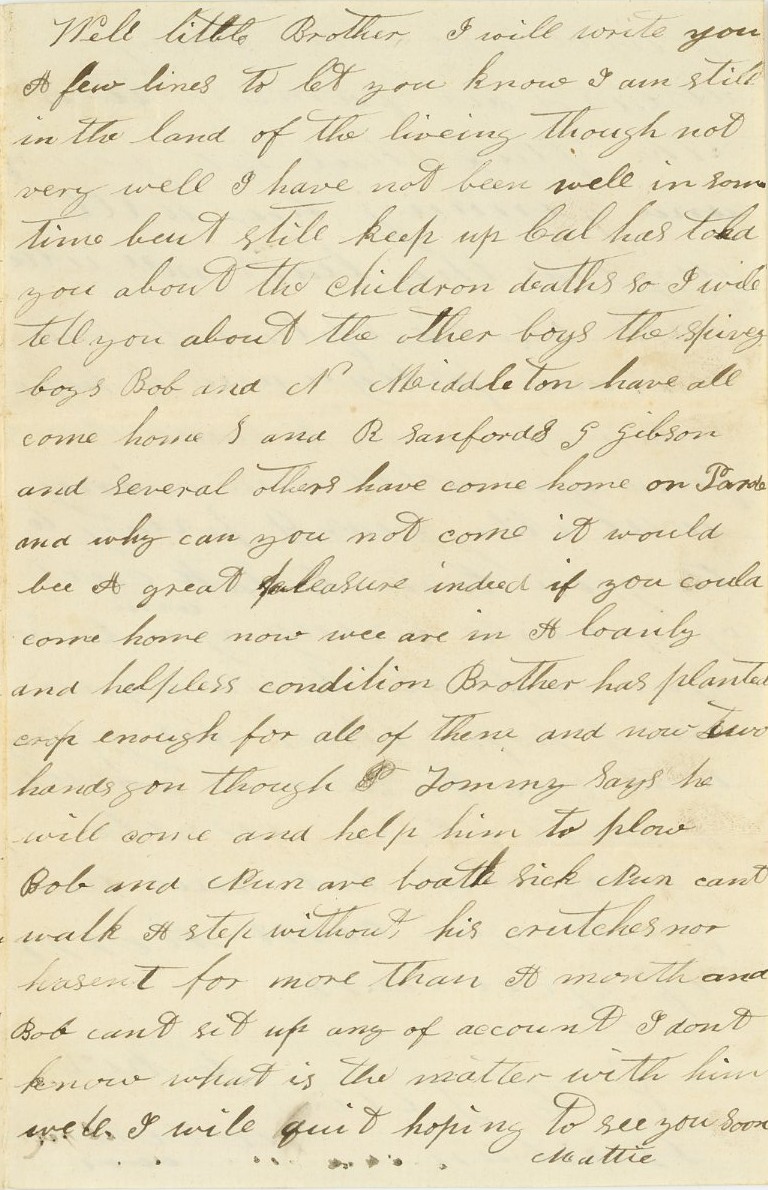 Well little Brother, I will write you
A few lines to let you know I am still
in the land of the liveing though not
very well I have not been well in som
time beut still keep up Cal has told
you about the children deaths so I will
tell you about the other boys the spivey
boys Bob and N Meiddleton have all
come home S and R Sanfords G Gibson
and several others have come home on Parole
and why can you not come it would
bee A great pleasure indeed if you could
come home now wee are in A loanly
and helpless condition Brother has planted
crop enough for all of them and now two
hands gon though P Tommy says he
will come and help him to plow
Bob and Nun are boath sick Nun cant
walk A step without his crutches nor
hasent for more than A month and
Bob cant sit up any of account I dont
know what is the matter with him
well I will quit hoping to see you soon
Mattie